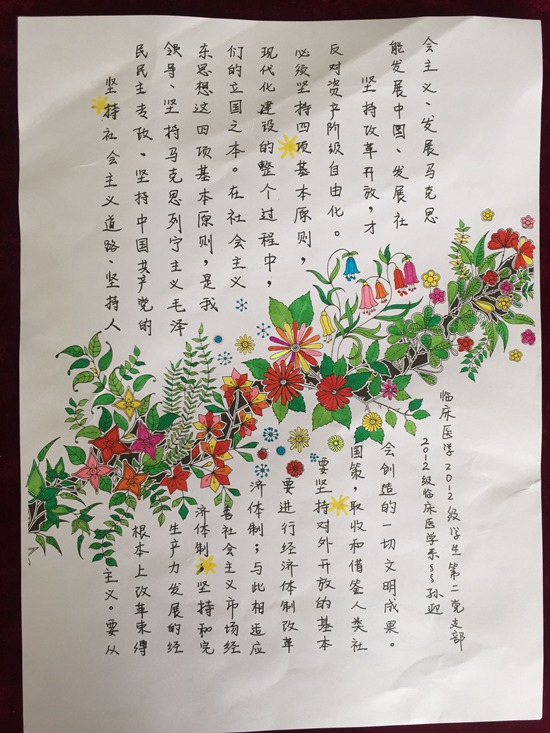 坚持社会主义道路、坚持人
民民主专政、坚持中国共产党的
领导、坚持马克思列宁主义毛泽
东思想这四项基本原则，是我
们的立国之本。在社会主义
现代化建设的整个过程中，
必须坚持四项基本原则，
反对资产阶级自由化。
坚持改革开放，才
能发展中国、发展社
会主义、发展马克思
主义。要从
根本上改革束缚
生产力发展的经
济体制，坚持和完
善社会主义市场经
济体制；与此相适应
要进行经济体制改革
要坚持对外开放的基本
国策，吸收和借鉴人类社
会创造的一切文明成果。
临床医学2012级学生第二党支部
2012级临床医学系 孙迎